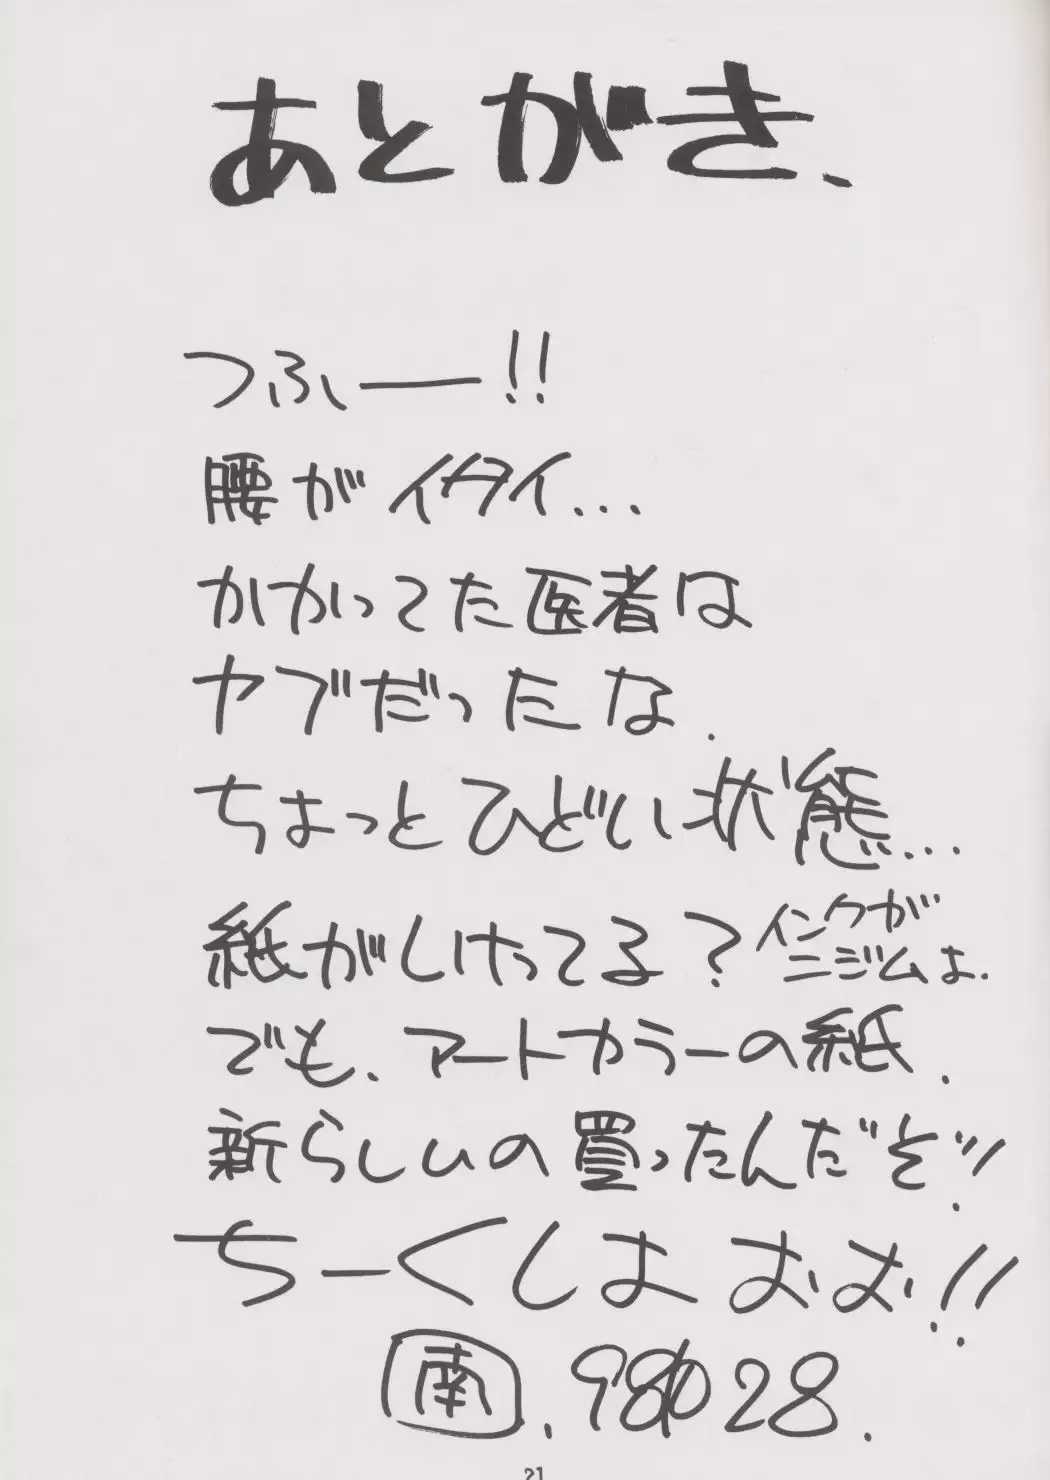 あとがき、
つふー!!
腰がイタイ...
かかってた医者は
ヤブだったな.
ちょっとひどい状態...
紙がしけってる?インクが
ニジムよ.
でも、アートカラーの紙.
新らしいの買ったんだぞッ!
ちーくしょおお!!
南.981028.
21